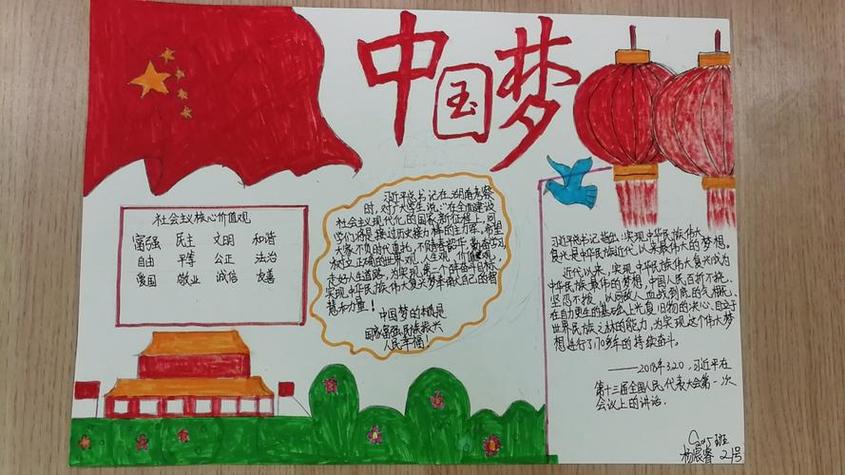 中国梦
社会主义核心价值观
富强 民主 文明 和谐
自由 平等 公正 法治
爱国 敬业 诚信 友善
时,对广大学生说:“在全面建设
社会主义现代化的国家新征程上,同
学们将是接过历史接力棒的主力军。希望
树立正确的世界观、人生观、价值观,
走好人生道路,为实现第二个百年奋斗目标、
实现中华民族伟大复兴梦奉献自己的智
慧和力量!
中国梦的本质是
国家富强民族振兴
人民幸福!
习近平总书记指出:实现中华民族伟大
复兴是中华民族近代以来最伟大的梦想。
近代以来,实现中华民族伟大复兴成为
中华民族最伟大的梦想,中国人民百折不挠、
坚忍不拔,以同敌人血战到底的气概、
在自力更生的基础上光复旧物的决心、自立于
世界民族之林的能力,为实现这个伟大梦
想进行了170多年的持续奋斗。
——2018年3.20,习近平在
第十三届全国人民代表大会第一次
会议上的讲话.
2015班
21号